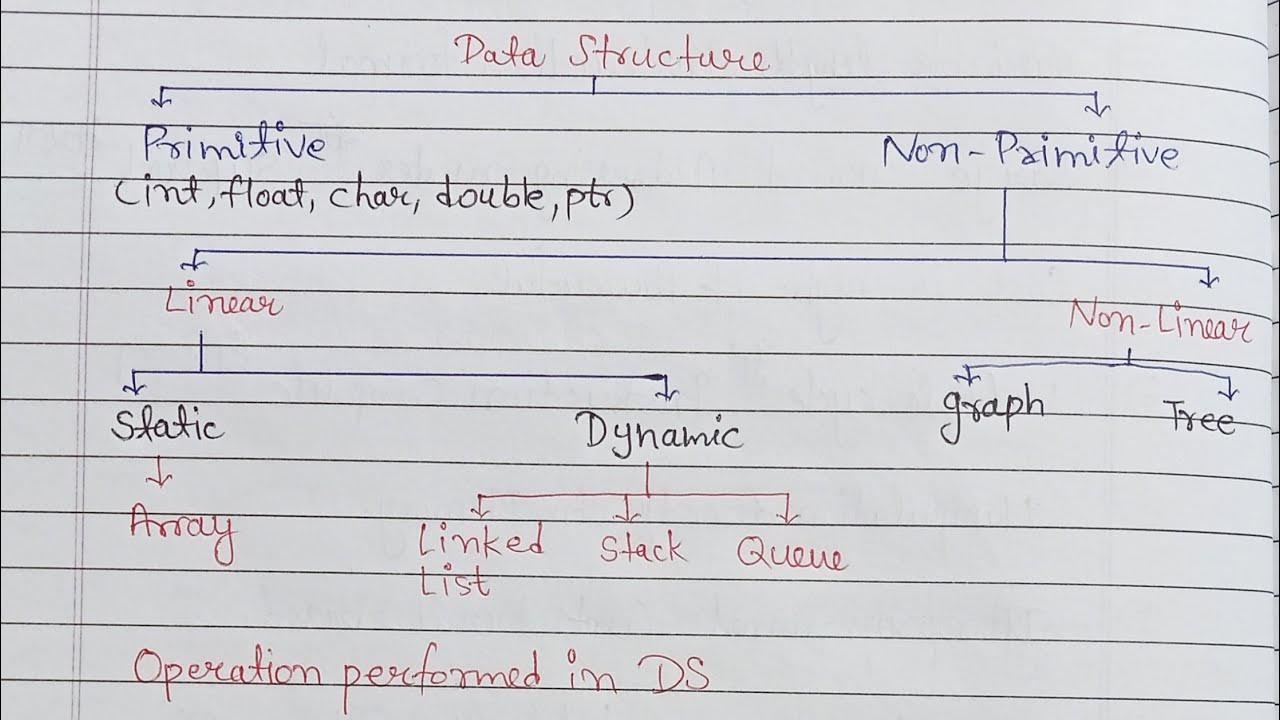 Data Structure
Primitive
Non-Primitive
(int, float, char, double, ptr)
Linear
Non-Linear
Static
Dynamic
graph
Tree
Array
Linked
List
Stack
Queue
Operation performed in DS